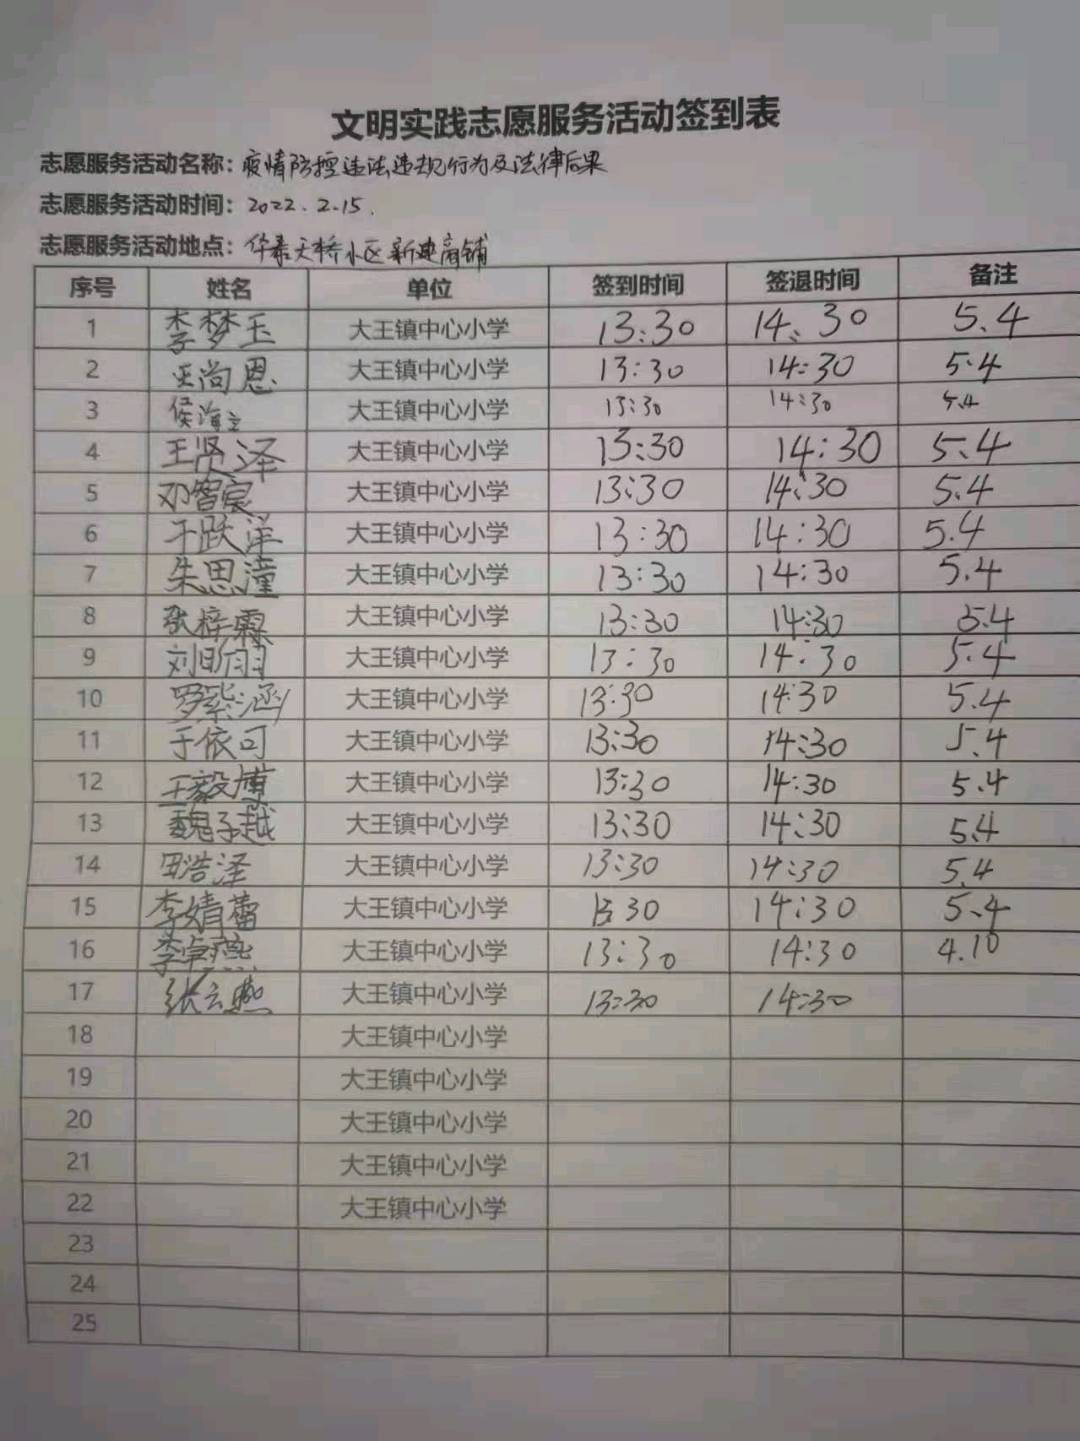 文明实践志愿服务活动签到表
志愿服务活动名称：疫情防控违法违规行为及法律后果
志愿服务活动时间：2022.2.15.
志愿服务活动地点：华泰天桥小区新建商铺
序号 姓名 单位 签到时间 签退时间 备注
1 李梦玉 大王镇中心小学 13:30 14:30 5.4
2 王尚恩 大王镇中心小学 13:30 14:30 5.4
3 侯海 大王镇中心小学 13:30 14:30 5.4
4 王贤泽 大王镇中心小学 13:30 14:30 5.4
5 邓智宸 大王镇中心小学 13:30 14:30 5.4
6 于跃洋 大王镇中心小学 13:30 14:30 5.4
7 朱思潼 大王镇中心小学 13:30 14:30 5.4
8 张梓霖 大王镇中心小学 13:30 14:30 5.4
9 刘昕羽 大王镇中心小学 13:30 14:30 5.4
10 罗紫涵 大王镇中心小学 13:30 14:30 5.4
11 于依可 大王镇中心小学 13:30 14:30 5.4
12 王毅博 大王镇中心小学 13:30 14:30 5.4
13 魏子越 大王镇中心小学 13:30 14:30 5.4
14 田浩泽 大王镇中心小学 13:30 14:30 5.4
15 李婧蕾 大王镇中心小学 13:30 14:30 5.4
16 李卓燕 大王镇中心小学 13:30 14:30 4.10
17 张云燕 大王镇中心小学 13:30 14:30
18 大王镇中心小学
19 大王镇中心小学
20 大王镇中心小学
21 大王镇中心小学
22 大王镇中心小学
23
24
25